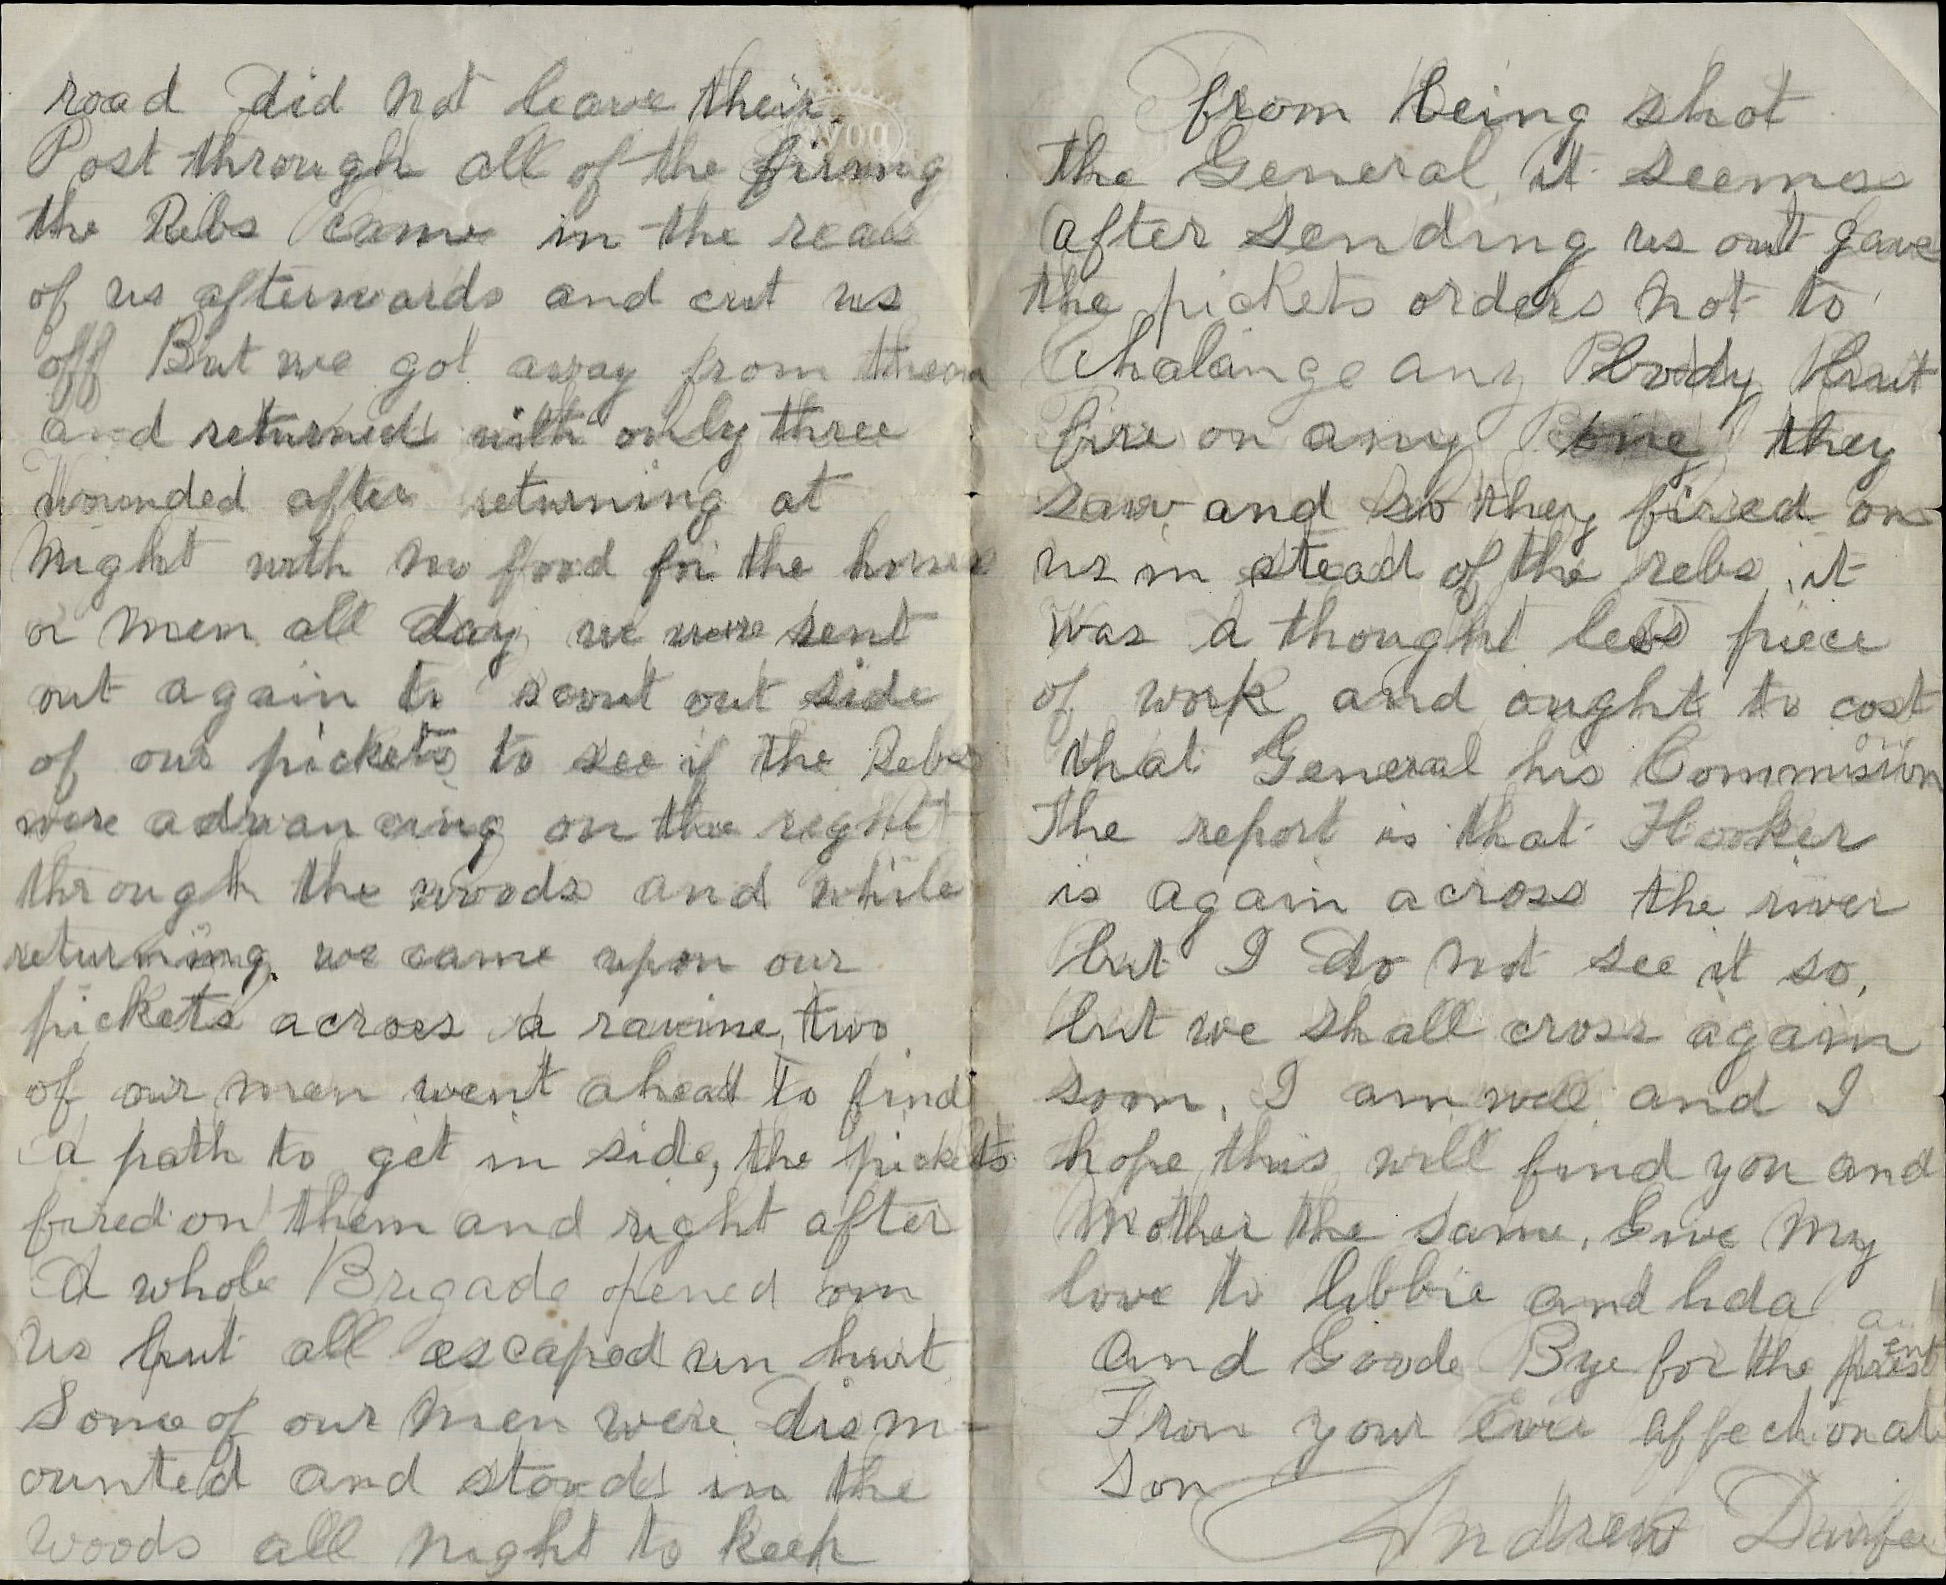 road did not leave their
Post through all of the firing
the Rebs came in the rear
of us afterwards and cut us
off But we got away from them
and returned with only three
wounded after returning at
Night with no food for the horses
or men all day we were sent
out again to scout out side
of our pickets to see if the Rebs
were advancing on the right
through the woods and while
returning we came upon our
pickets across a ravine, two
of our men went ahead to find
a path to get in side, the pickets
fired on them and right after
A whole Brigade opened on
us but all escaped un hurt
Some of our men were dism-
ounted and stood in the
woods all night to keep
from being shot
the General it seemes
after sending us out gave
the pickets orders not to
Chalange any Body But
fire on any one they
saw and so they fired on
us in stead of the rebs, it
was a thought less piece
of work and ought to cost
that General his Commision
The report is that Hooker
is again across the river
but I do not see it so,
but we shall cross again
soon, I am well and I
hope this will find you and
Mother the same, Give My
love to Libbie and Lida
and Goode Bye for the present
From your Ever affectionate
Son
Andrew